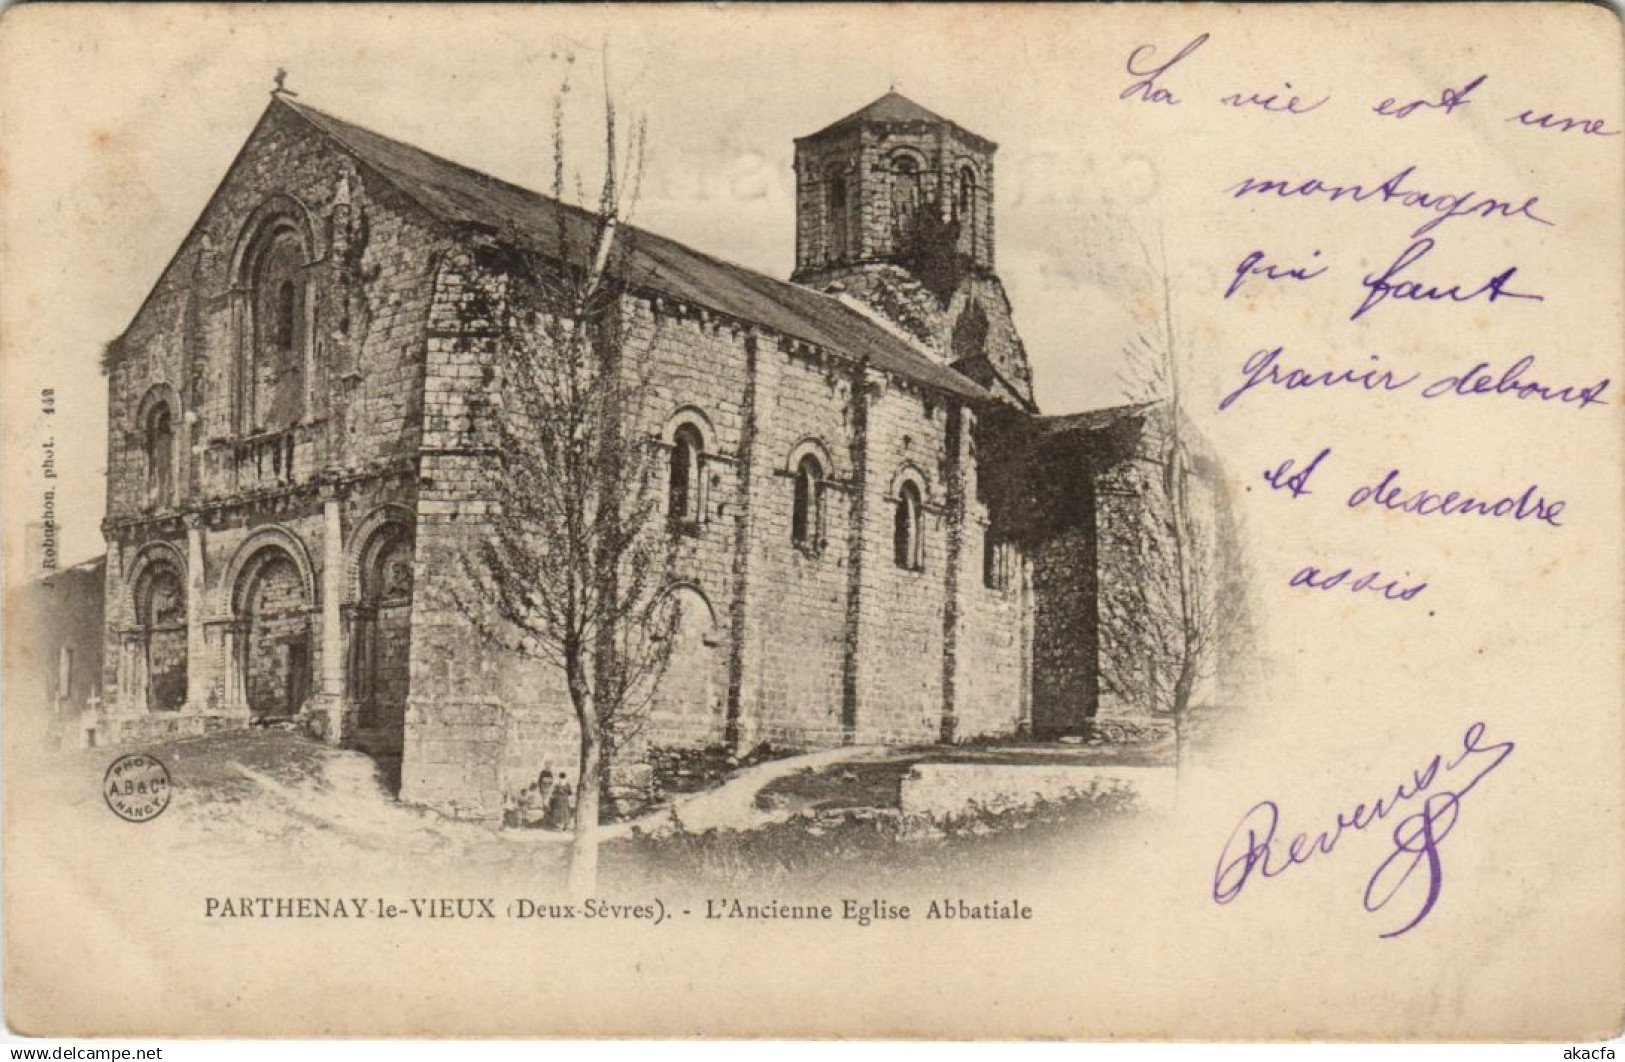 La vie est une
montagne
qui faut
gravir debout
et descendre
assis.
J. Robuchon, phot. 142
PHOT
A.B & Cie
NANCY.
PARTHENAY-le-VIEUX (Deux-Sèvres). - L'Ancienne Eglise Abbatiale
akacfa